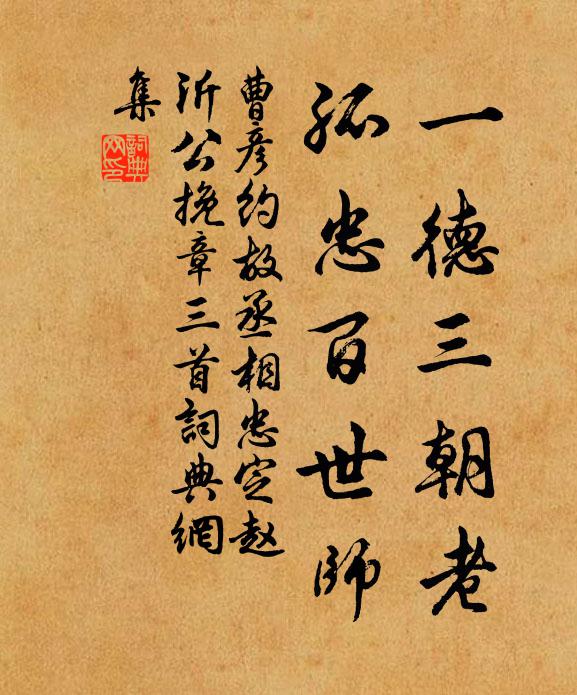 一德三朝老
孤忠百世師
曹彦約故丞相忠定赵
沂公挽章三首詞典網
集
詞典
网印